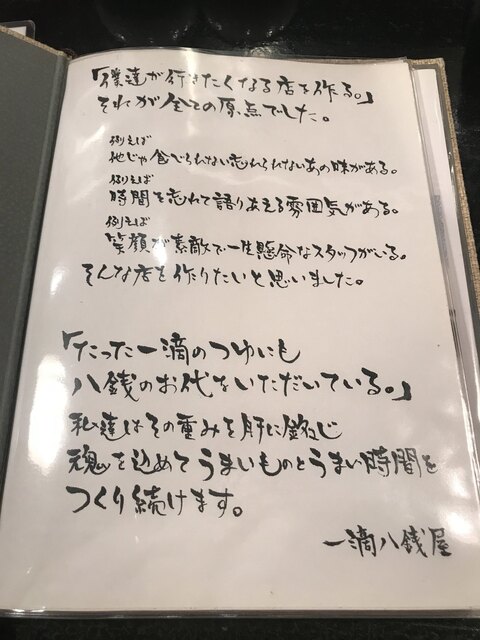 「僕達が行きたくなる店を作る。」
それが全ての原点でした。
例えば
他じゃ食べられない忘れられないあの味がある。
例えば
時間を忘れて語りあえる雰囲気がある。
例えば
笑顔が素敵で一生懸命なスタッフがいる。
そんな店を作りたいと思いました。
「たった一滴のつゆにも
八銭のお代をいただいている。」
私達はその重みを肝に銘じ
魂を込めてうまいものとうまい時間を
つくり続けます。
一滴八銭屋